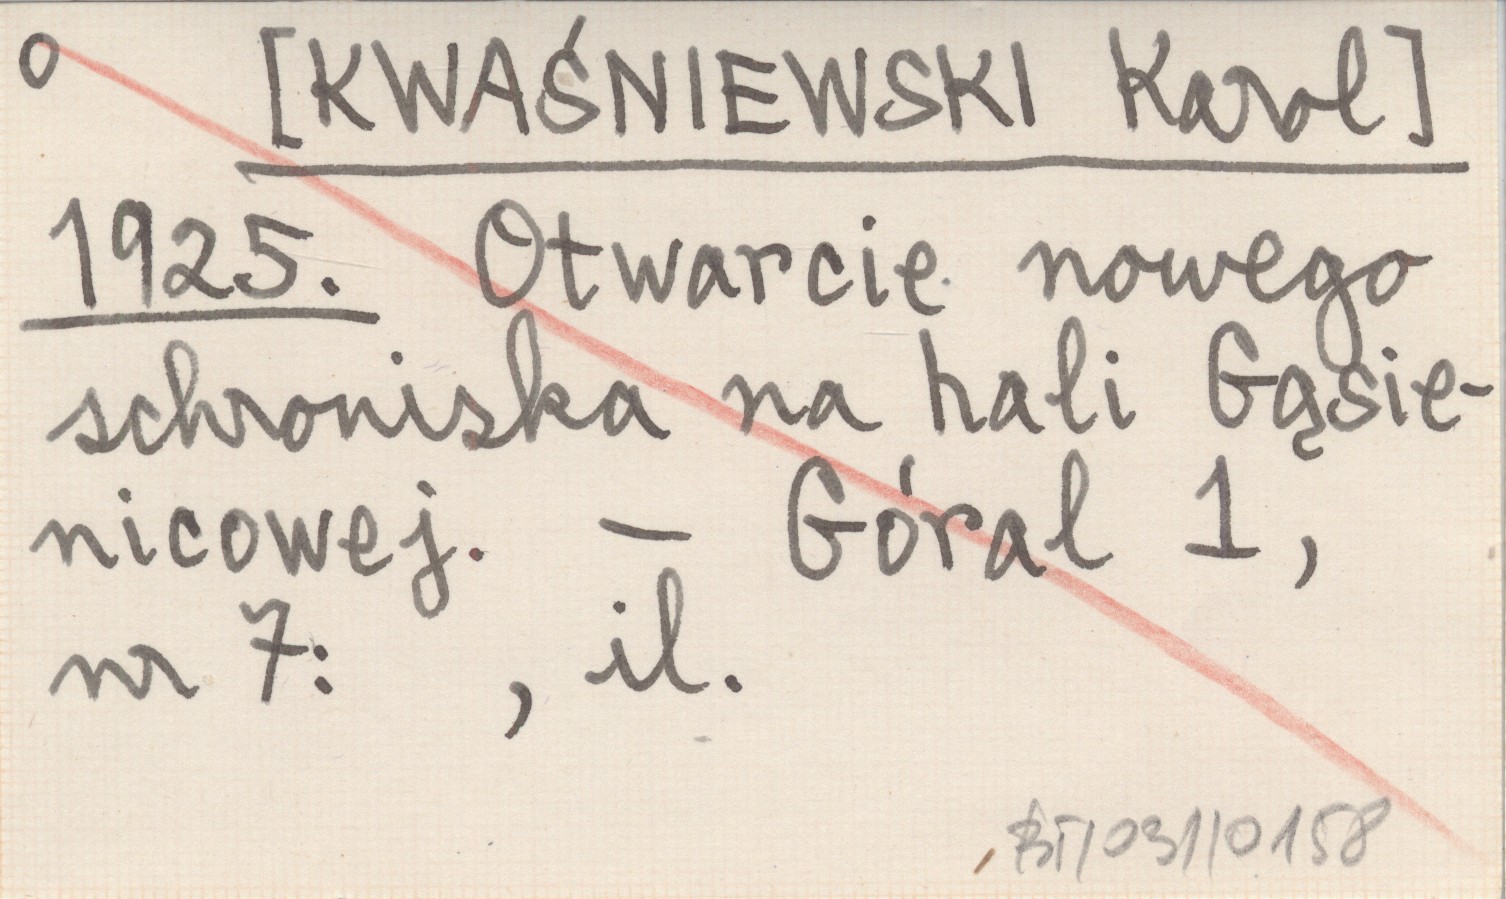 o [KWAŚNIEWSKI Karol]
1925. Otwarcie nowego
schroniska na hali Gąsie-
nicowej. — Góral 1,
nr 7: , il.
BT/031/0158